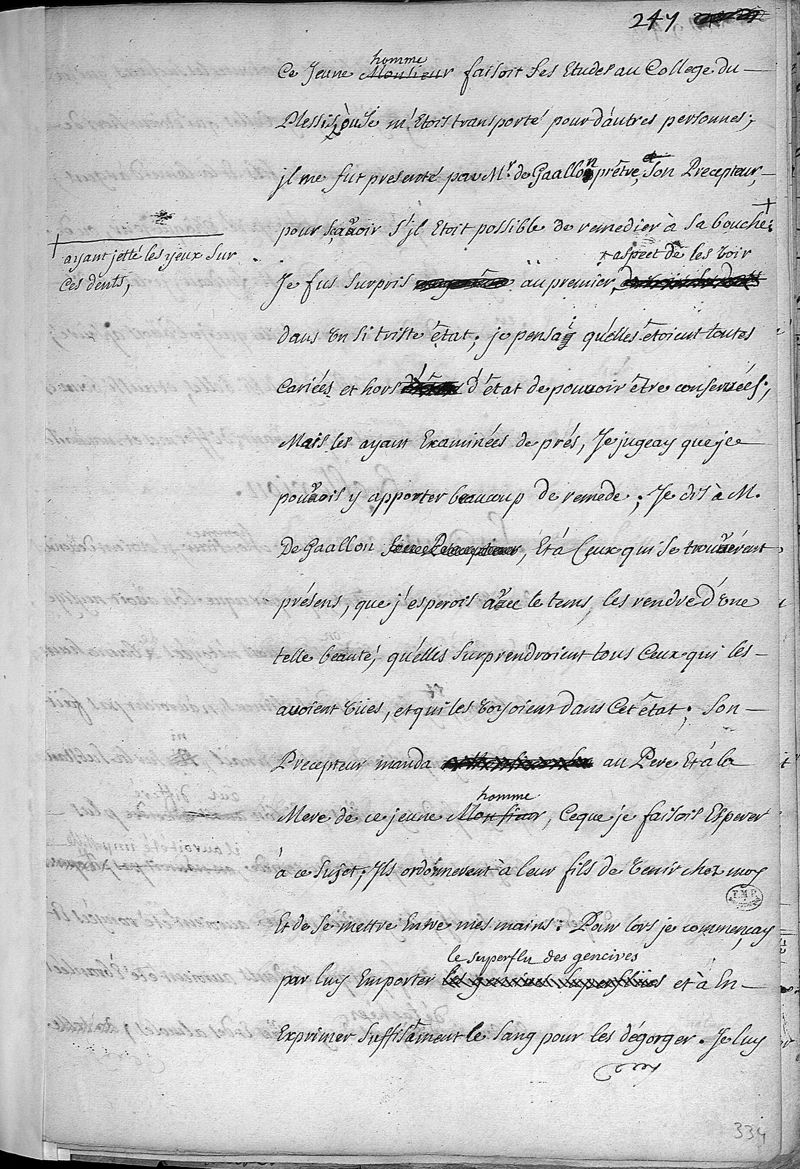 247
homme
Ce Jeune Monsieur faisoit ses Etudes au College du
Plessis, où Je m'Etois transporté pour d'autres personnes;
jl me fut presenté par Mr. de Gaallon prêtre, et Son Precepteur,
pour sçavoir s'jl Etoit possible de remedier à sa bouche; +
+ ayant jetté les yeux sur
ces dents,
+ aspect de les voir
Je fus surpris au premier
dans Un si triste état; je pensai qu'elles étoient toutes
Cariées et hors d'état de pouvoir être conservées;
Mais les ayant Examinées de prés, Je jugeay que je
pouvois y apporter beaucoup de remede; Je dis à M.
De Gaallon son Precepteur, Et à Ceux qui se trouvérent
présens, que j'esperois avec le tems, les rendre d'Une
telle beauté, qu'elles surprendroient tous Ceux qui les
avoient Vües, et qui les Voyoient dans Cet état; Son
Precepteur manda au Pere Et à la
homme
Mere de ce jeune Monsieur, Ce que je faisois Esperer
à ce sujet; Jls ordonnerent à leur fils de Venir chez moy
Et de se mettre Entre mes mains: Pour lors je commençay
le superflu des gencives
par luy Emporter les gencives superflües et à En
Exprimer suffisament le sang pour les dégorger. Je luy
334